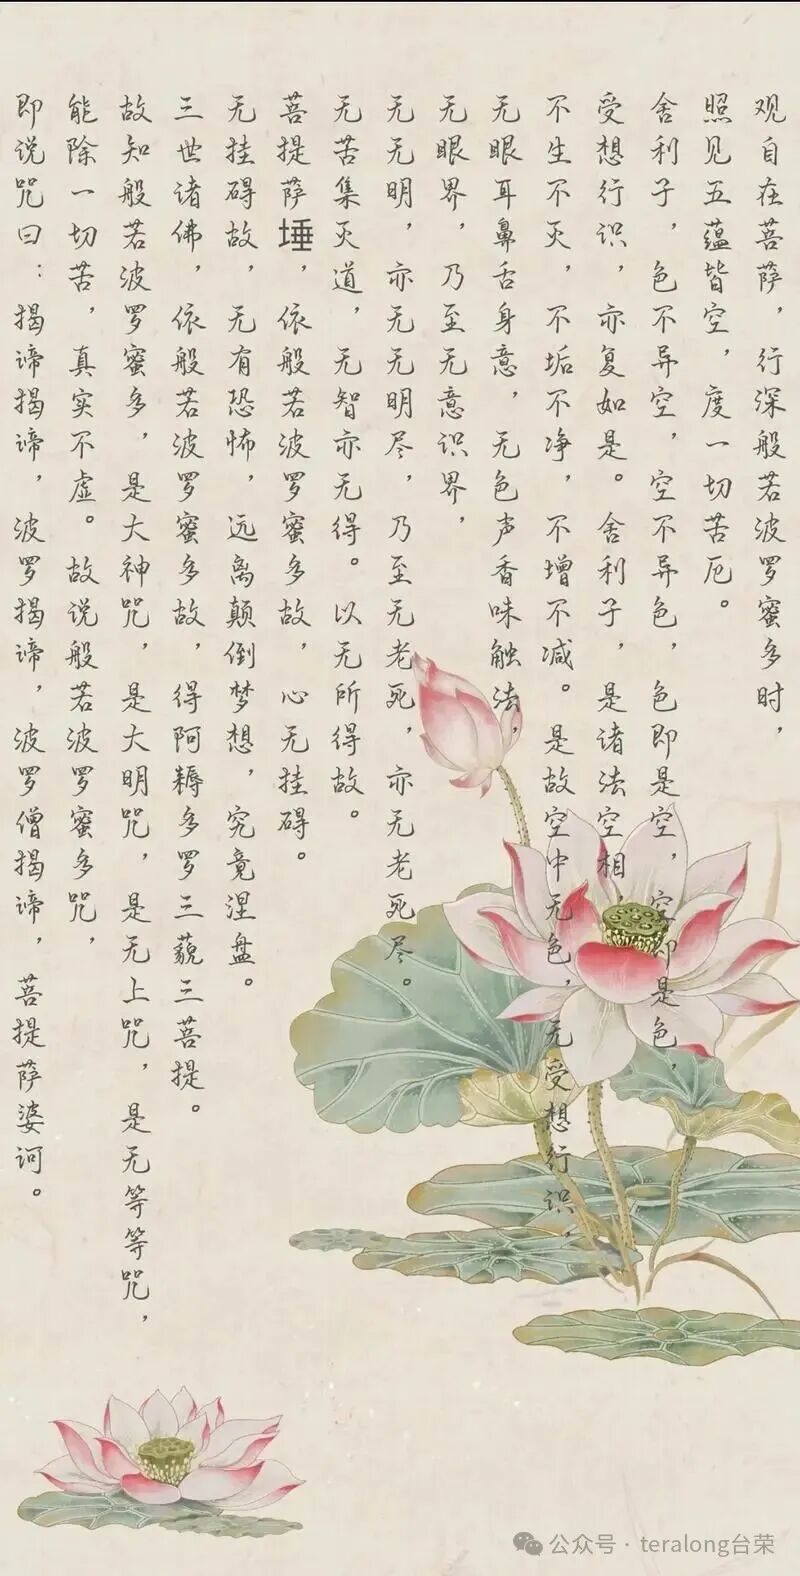 观自在菩萨，行深般若波罗蜜多时，
照见五蕴皆空，度一切苦厄。
舍利子，色不异空，空不异色，色即是空，空即是色，
受想行识，亦复如是。舍利子，是诸法空相，
不生不灭，不垢不净，不增不减。是故空中无色，无受想行识，
无眼耳鼻舌身意，无色声香味触法，
无眼界，乃至无意识界，
无无明，亦无无明尽，乃至无老死，亦无老死尽。
无苦集灭道，无智亦无得。以无所得故。
菩提萨埵，依般若波罗蜜多故，心无挂碍。
无挂碍故，无有恐怖，远离颠倒梦想，究竟涅盘。
三世诸佛，依般若波罗蜜多故，得阿耨多罗三藐三菩提。
故知般若波罗蜜多，是大神咒，是大明咒，是无上咒，是无等等咒，
能除一切苦，真实不虚。故说般若波罗蜜多咒，
即说咒曰：揭谛揭谛，波罗揭谛，波罗僧揭谛，菩提萨婆诃。
公众号·teralong台荣